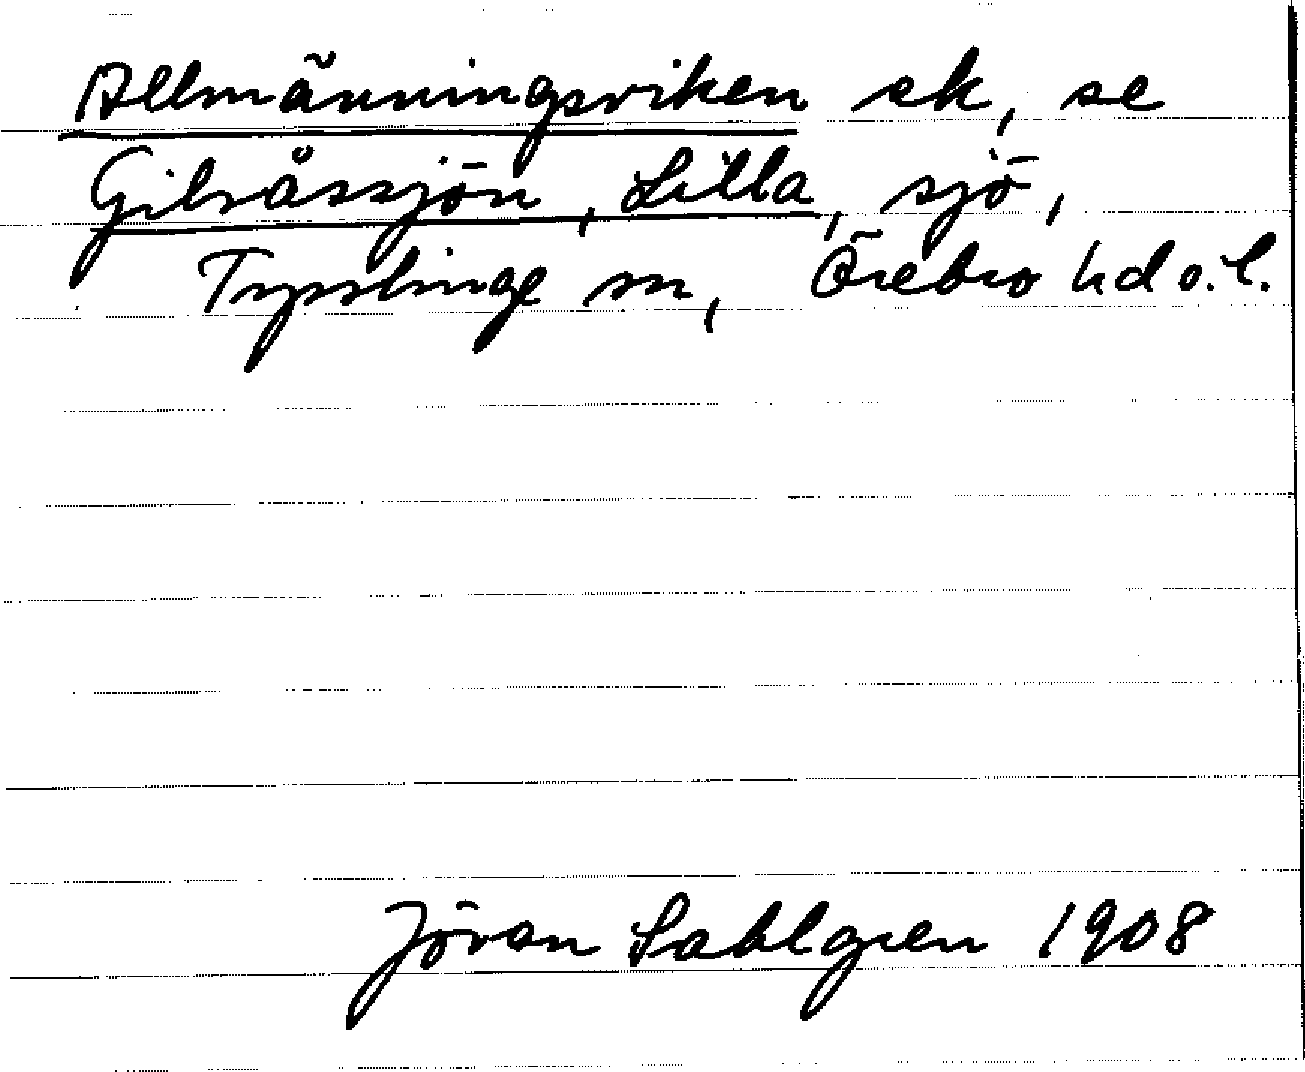 Allmänningsviken ek, se
Gilsåssjön, Lilla, sjö,
Tysslinge sn, Örebro hd o. l.
Jöran Sahlgren 1908